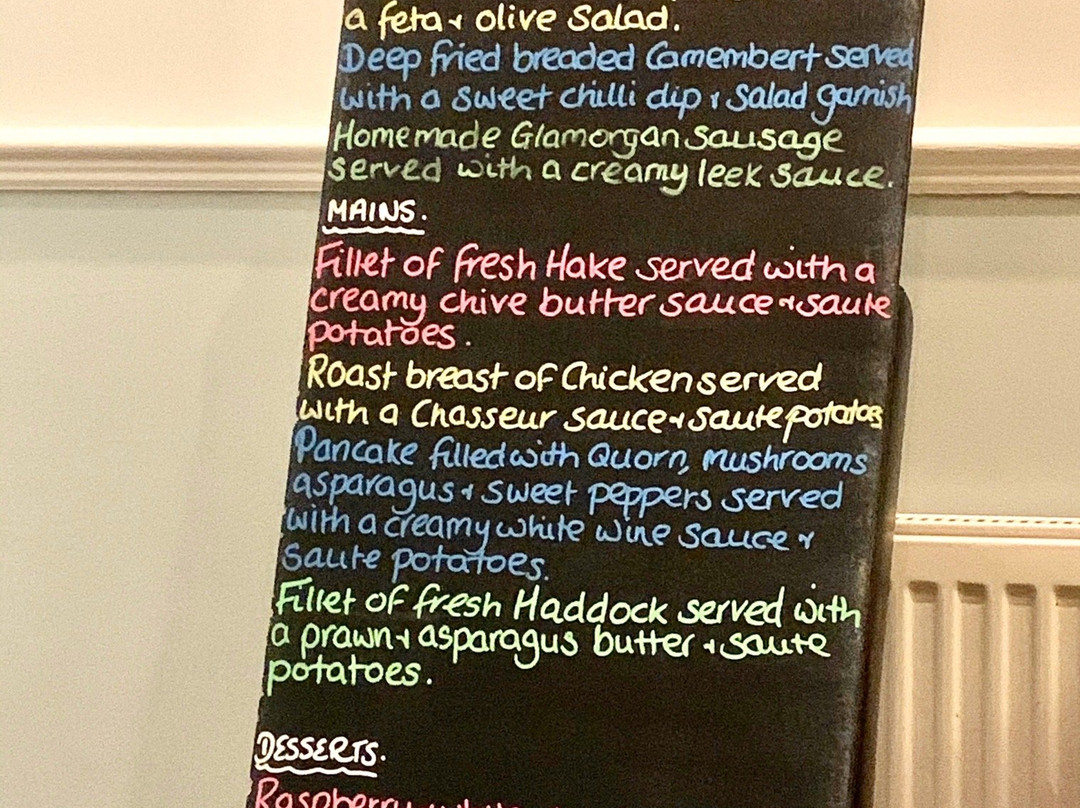 a feta & olive Salad.
Deep fried breaded Camembert served
with a sweet chilli dip & Salad garnish
Homemade Glamorgan Sausage
served with a creamy leek sauce.
MAINS.
Fillet of fresh Hake served with a
creamy chive butter sauce & saute
potatoes.
Roast breast of Chicken served
with a Chasseur sauce & saute potatoes
Pancake filled with Quorn, mushrooms
asparagus & sweet peppers served
with a creamy white wine sauce &
Saute potatoes.
Fillet of fresh Haddock served with
a prawn & asparagus butter & saute
potatoes.
DESSERTS.
Raspberry